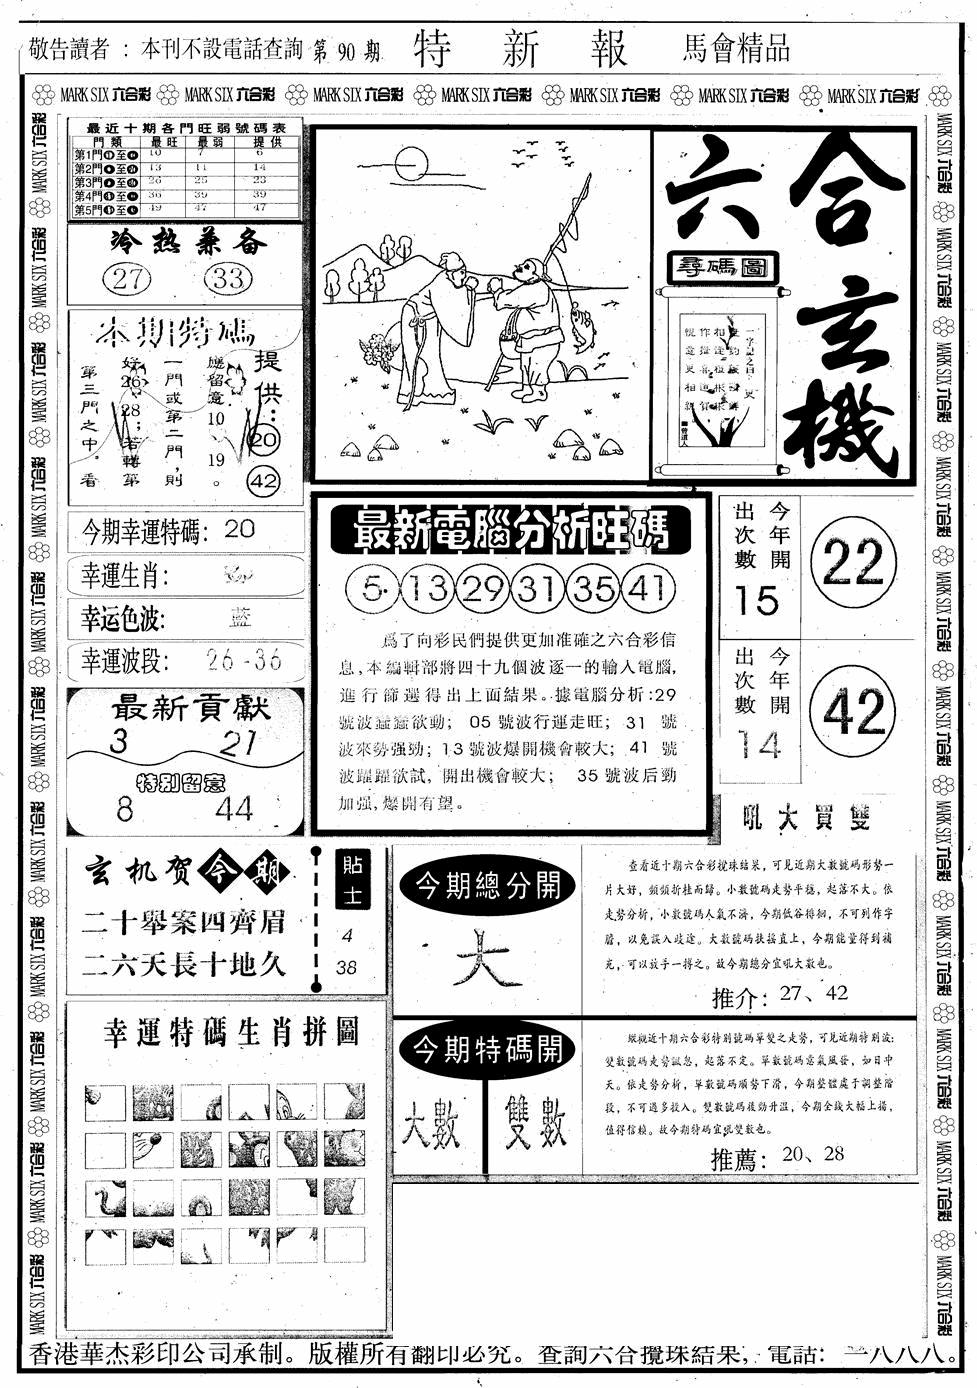 敬告讀者：本刊不設電話查詢 第90期 特新報 馬會精品
MARK SIX 六合彩 MARK SIX 六合彩 MARK SIX 六合彩 MARK SIX 六合彩 MARK SIX 六合彩 MARK SIX 六合彩 MARK SIX 六合彩
最近十期各門旺弱號碼表
門類 最旺 最弱 提供
第1門 至 10 7 6
第2門 至 13 11 14
第3門 至 26 25 23
第4門 至 36 39 39
第5門 至 49 47 47
冷热兼备
27 33
本期特碼
提供：
20
42
應留意10、19。
一門或第二門，則
好26、28；若轉第
第三門之中。看
今期幸運特碼：20
幸運生肖：
幸运色波：藍
幸運波段：26-36
最新貢獻
3 21
特别留意
8 44
六合玄機
尋碼圖
一字記之曰：更
■曾道人
最新電腦分析旺碼
5 13 29 31 35 41
爲了向彩民們提供更加准確之六合彩信
息，本編輯部將四十九個波逐一的輸入電腦，
進行篩選得出上面結果。據電腦分析：29
號波蠢蠢欲動；05號波行運走旺；31號
波來勢强勁；13號波爆開機會較大；41號
波躍躍欲試，開出機會較大；35號波后勁
加强，爆開有望。
今年開出次數 15
22
今年開出次數 14
42
吼大買雙
玄机贺今期
二十舉案四齊眉
二六天長十地久
貼士
4
38
今期總分開
大
查看近十期六合彩攪珠結果，可見近期大數號碼形勢一
片大好，頻頻折桂而歸。小數號碼走勢平穩，起落不大。依
走勢分析，小數號碼人氣不濟，今期低谷徘徊，不可列作字
膽，以免誤入歧途。大數號碼扶摇直上，今期能量得到補
充，可以放手一搏之。故今期總分宜吼大數也。
推介：27、42
今期特碼開
大數 雙數
縱觀近十期六合彩特別號碼單雙之走勢，可見近期特別波：
雙數號碼走勢飄忽，起落不定。單數號碼意氣風發，如日中
天。依走勢分析，單數號碼順勢下滑，今期整體處于調整階
段，不可過多投入。雙數號碼後勁升温，今期金錢大幅上揚，
值得信賴。故今期特碼宜吼雙數也。
推薦：20、28
幸運特碼生肖拼圖
香港華杰彩印公司承制。版權所有翻印必究。查詢六合攪珠結果，電話：一八八八。